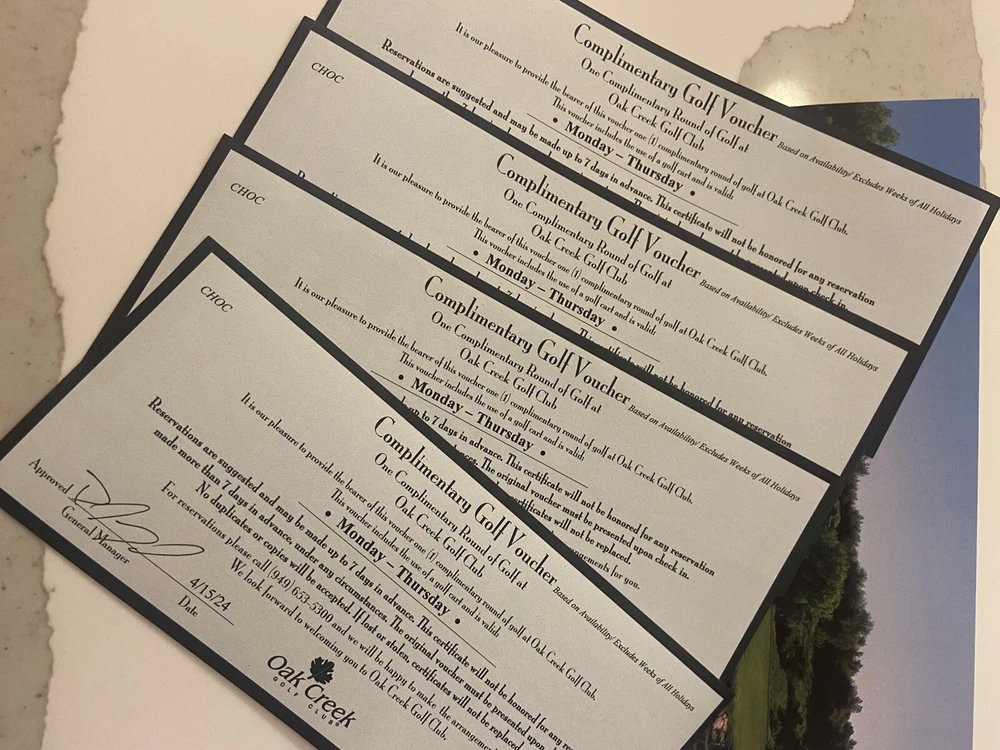 Complimentary Golf Voucher
One Complimentary Round of Golf at
Oak Creek Golf Club
It is our pleasure to provide the bearer of this voucher one (1) complimentary round of golf at Oak Creek Golf Club.
This voucher includes the use of a golf cart and is valid:
• Monday – Thursday •
Based on Availability/ Excludes Weeks of All Holidays
Reservations are suggested and may be made up to 7 days in advance. This certificate will not be honored for any reservation
upon check in.
CHOC
Complimentary Golf Voucher
One Complimentary Round of Golf at
Oak Creek Golf Club
It is our pleasure to provide the bearer of this voucher one (1) complimentary round of golf at Oak Creek Golf Club.
This voucher includes the use of a golf cart and is valid:
• Monday – Thursday •
Based on Availability/ Excludes Weeks of All Holidays
not be honored for any reservation
CHOC
Complimentary Golf Voucher
One Complimentary Round of Golf at
Oak Creek Golf Club
It is our pleasure to provide the bearer of this voucher one (1) complimentary round of golf at Oak Creek Golf Club.
This voucher includes the use of a golf cart and is valid:
• Monday – Thursday •
Based on Availability/ Excludes Weeks of All Holidays
up to 7 days in advance. This certificate will not be honored for any reservation
The original voucher must be presented upon check in.
certificates will not be replaced.
for you.
CHOC
Complimentary Golf Voucher
One Complimentary Round of Golf at
Oak Creek Golf Club
It is our pleasure to provide the bearer of this voucher one (1) complimentary round of golf at Oak Creek Golf Club.
This voucher includes the use of a golf cart and is valid:
• Monday – Thursday •
Based on Availability/ Excludes Weeks of All Holidays
Reservations are suggested and may be made up to 7 days in advance. This certificate will not be honored for any
made more than 7 days in advance, under any circumstances. The original voucher must be presented upon
No duplicates or copies will be accepted. If lost or stolen, certificates will not be replaced
For reservations please call (949) 653-5300 and we will be happy to make the
We look forward to welcoming you to Oak Creek Golf Club.
Approved
General Manager
4/15/24
Date
Oak Creek
GOLF CLUB